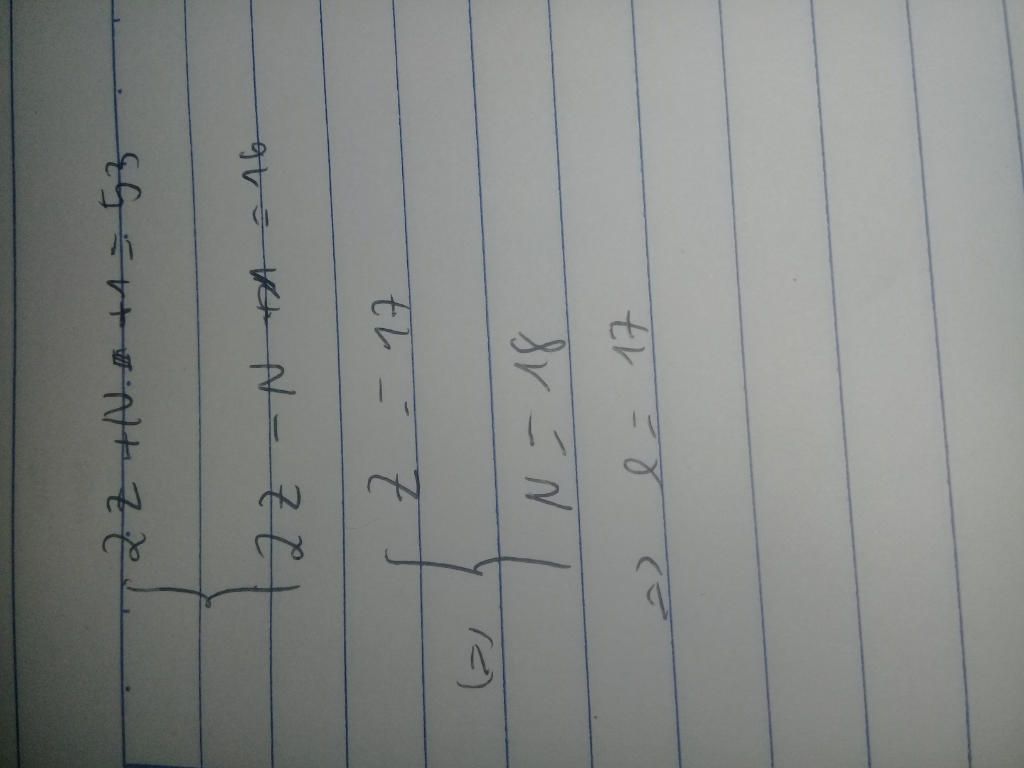 { 2.Z + N + 1 = 53
2Z - N + 1 = 16
(=) { Z = 17
N = 18
=> e = 17